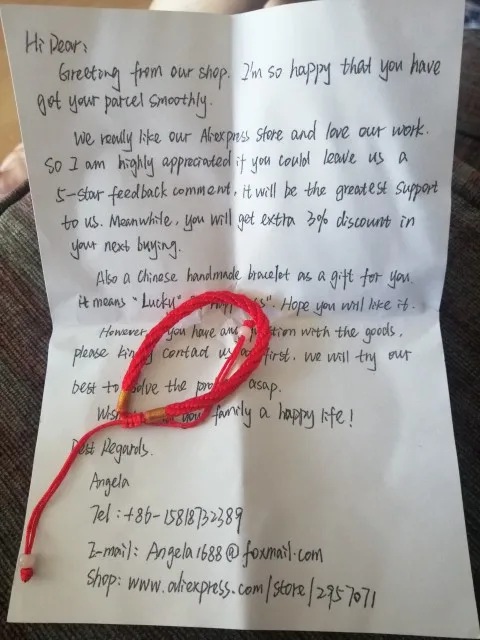 Hi Dear:
Greeting from our shop. I'm so happy that you have
got your parcel smoothly.
We really like our Aliexpress store and love our work.
So I am highly appreciated if you could leave us a
5-star feedback comment, it will be the greatest support
to us. Meanwhile, you will get extra 3% discount in
your next buying.
Also a Chinese handmade bracelet as a gift for you.
it means "Lucky" Hope you will like it.
However, you have any with the goods,
please contact us first. we will try our
best to solve the asap.
you family a happy life!
Best Regards.
Angela
Tel: +86-15818732389
E-mail: Angela1688@foxmail.com
Shop: www.aliexpress.com/store/2957071